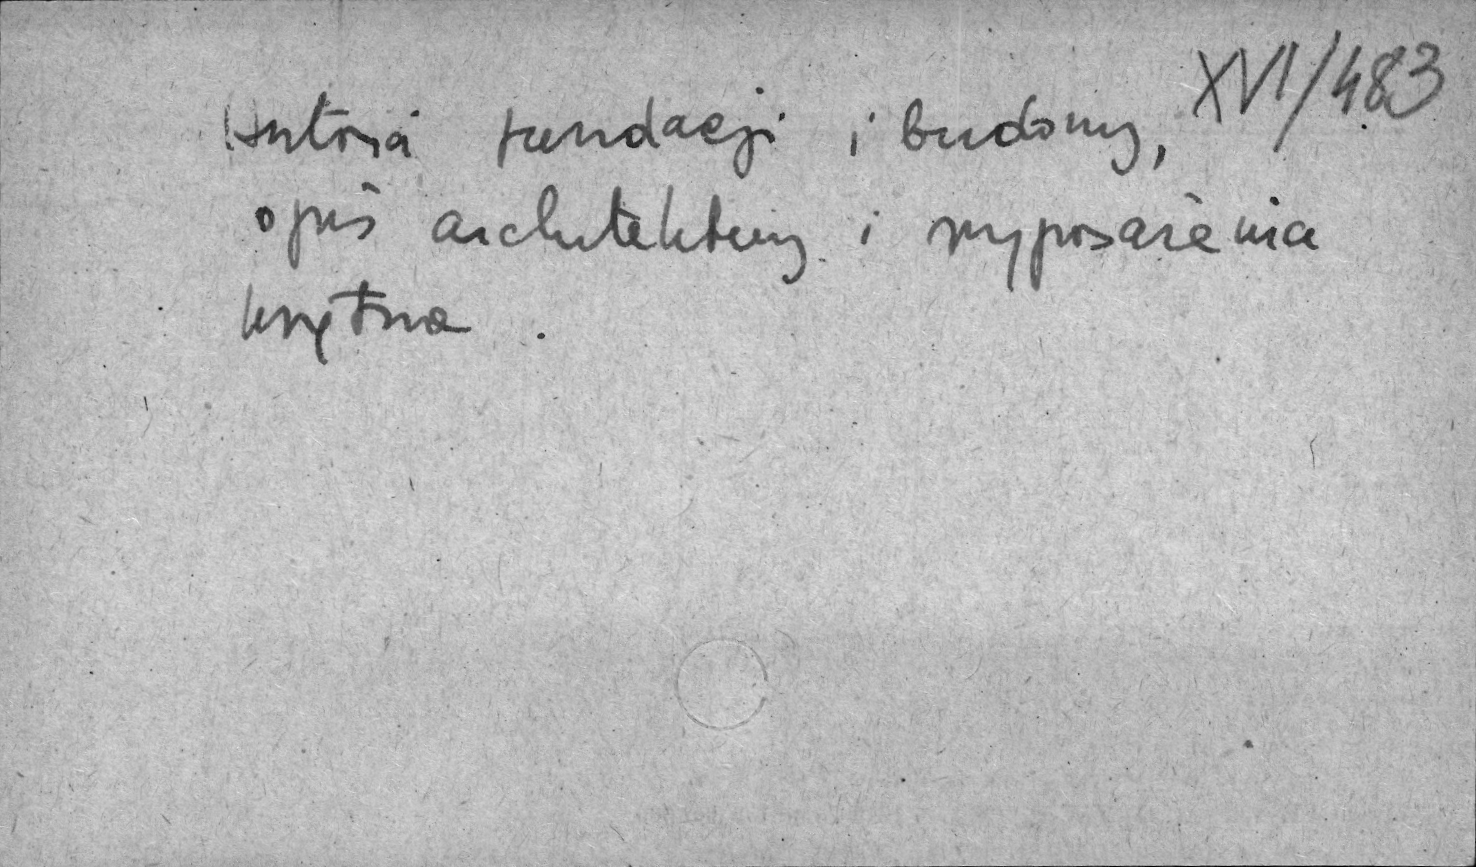 XVI/483
Historia fundacji i budowy,
opis architektury i wyposażenia
wnętrza.